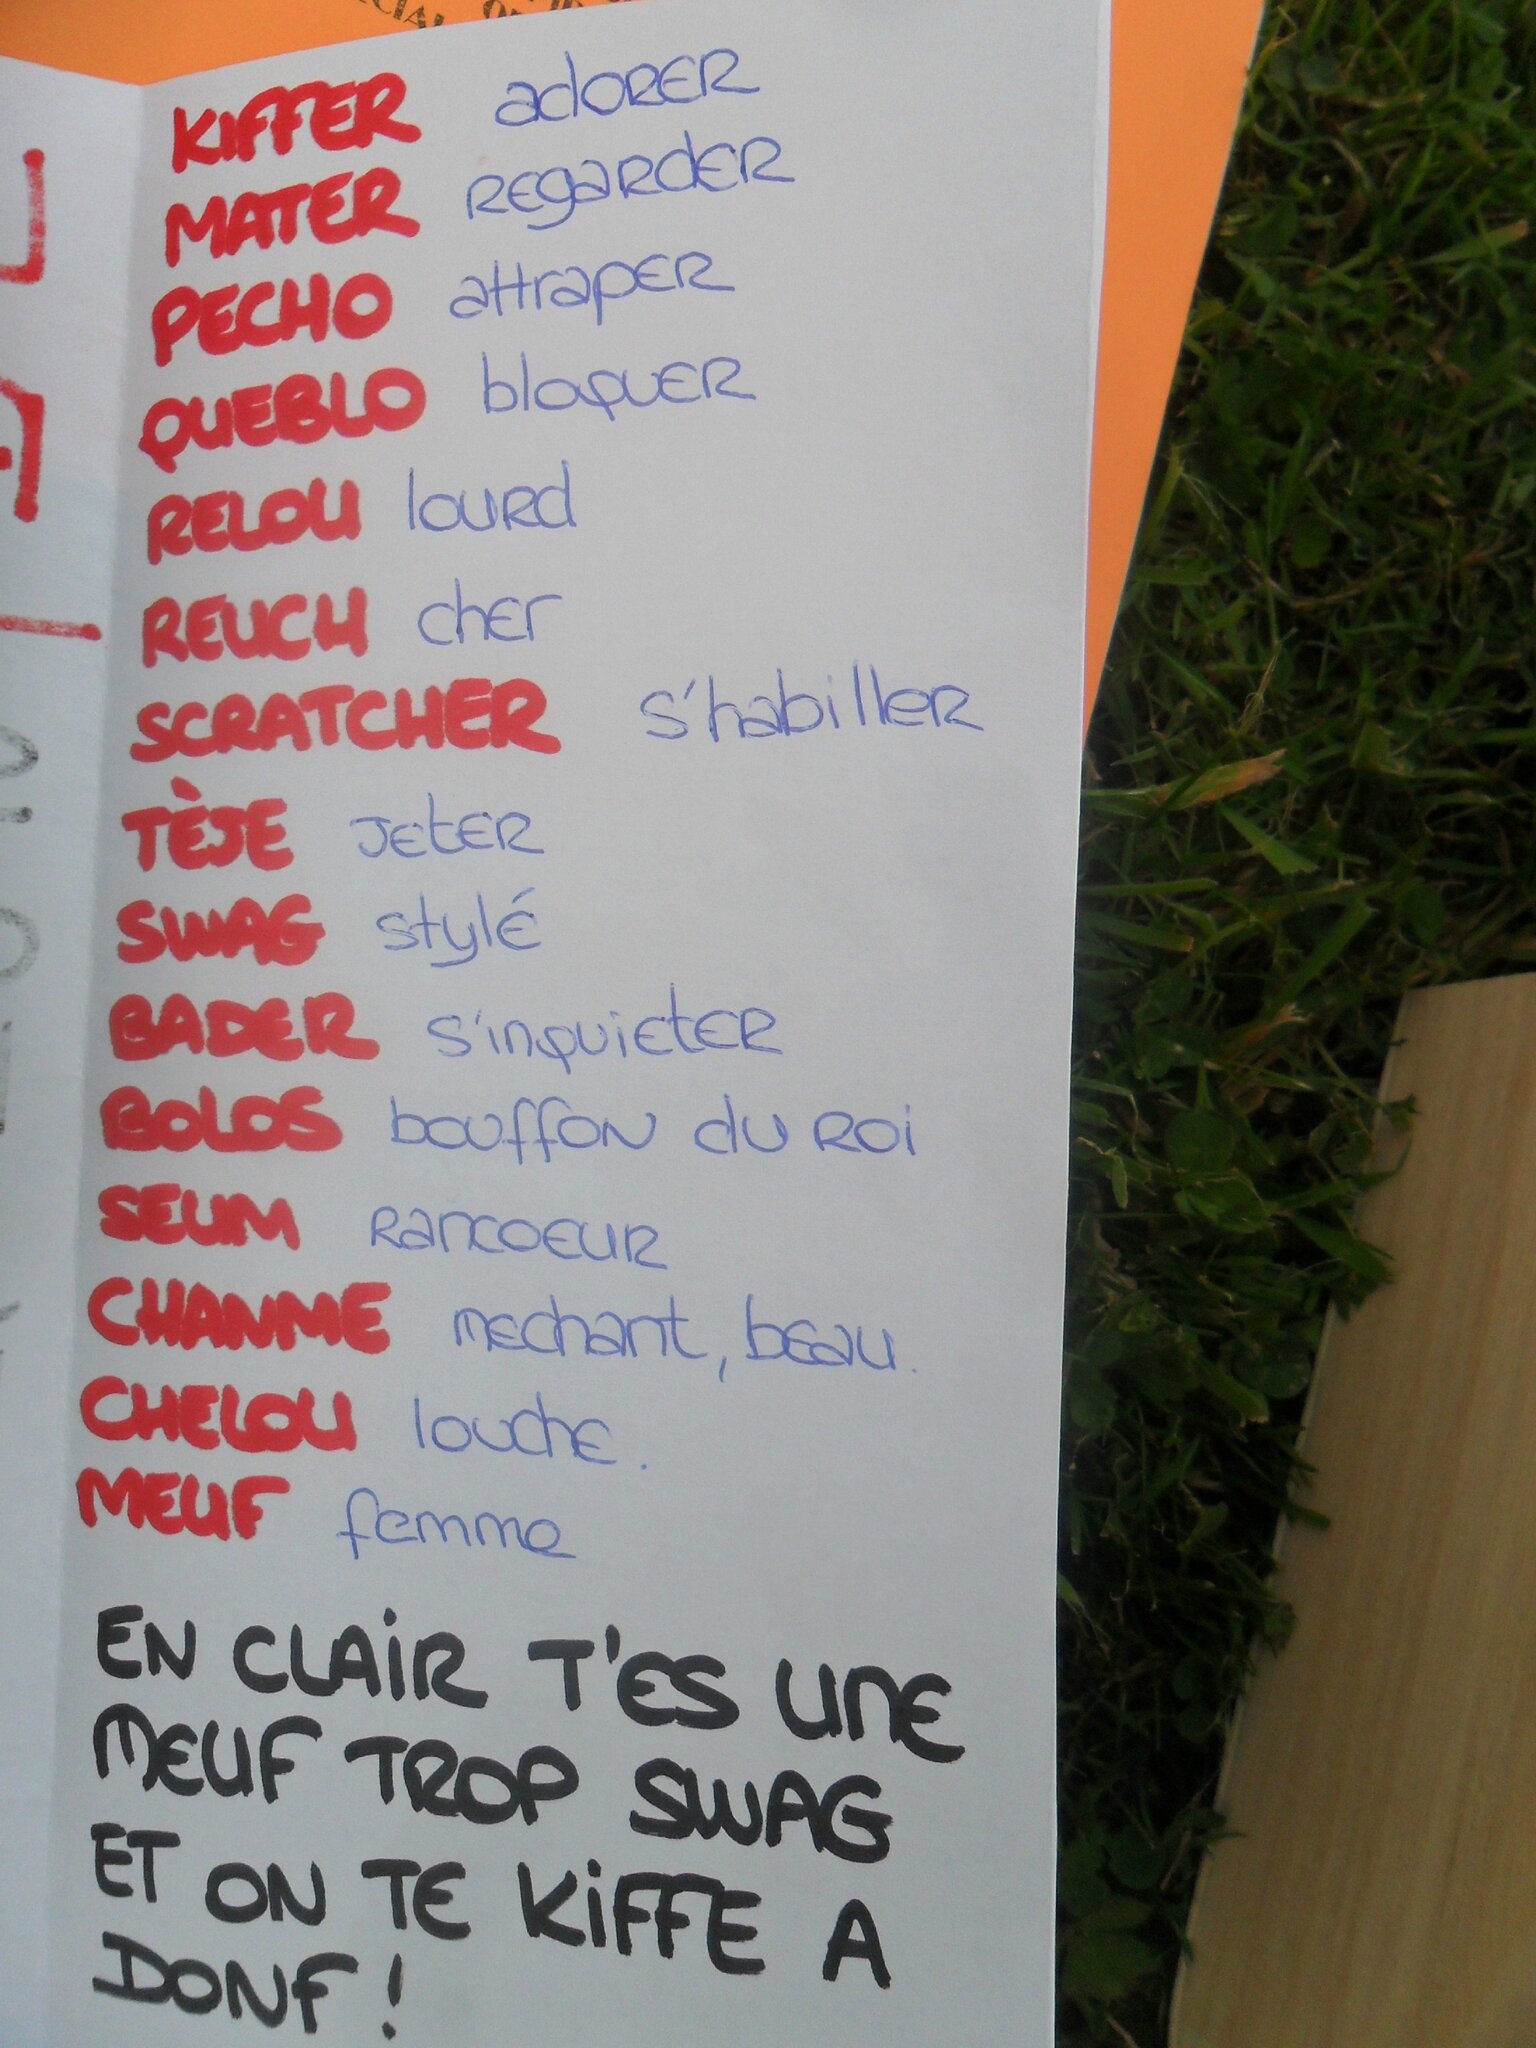 KIFFER adorer
MATER regarder
PECHO attraper
QUEBLO bloquer
RELOU lourd
REUCH cher
SCRATCHER s'habiller
TÈJE jeter
SWAG stylé
BADER s'inquieter
BOLOS bouffon du roi
SEUM rancoeur
CHANME mechant, beau.
CHELOU louche.
MEUF femme
EN CLAIR T'ES UNE
MEUF TROP SWAG
ET ON TE KIFFE A
DONF !